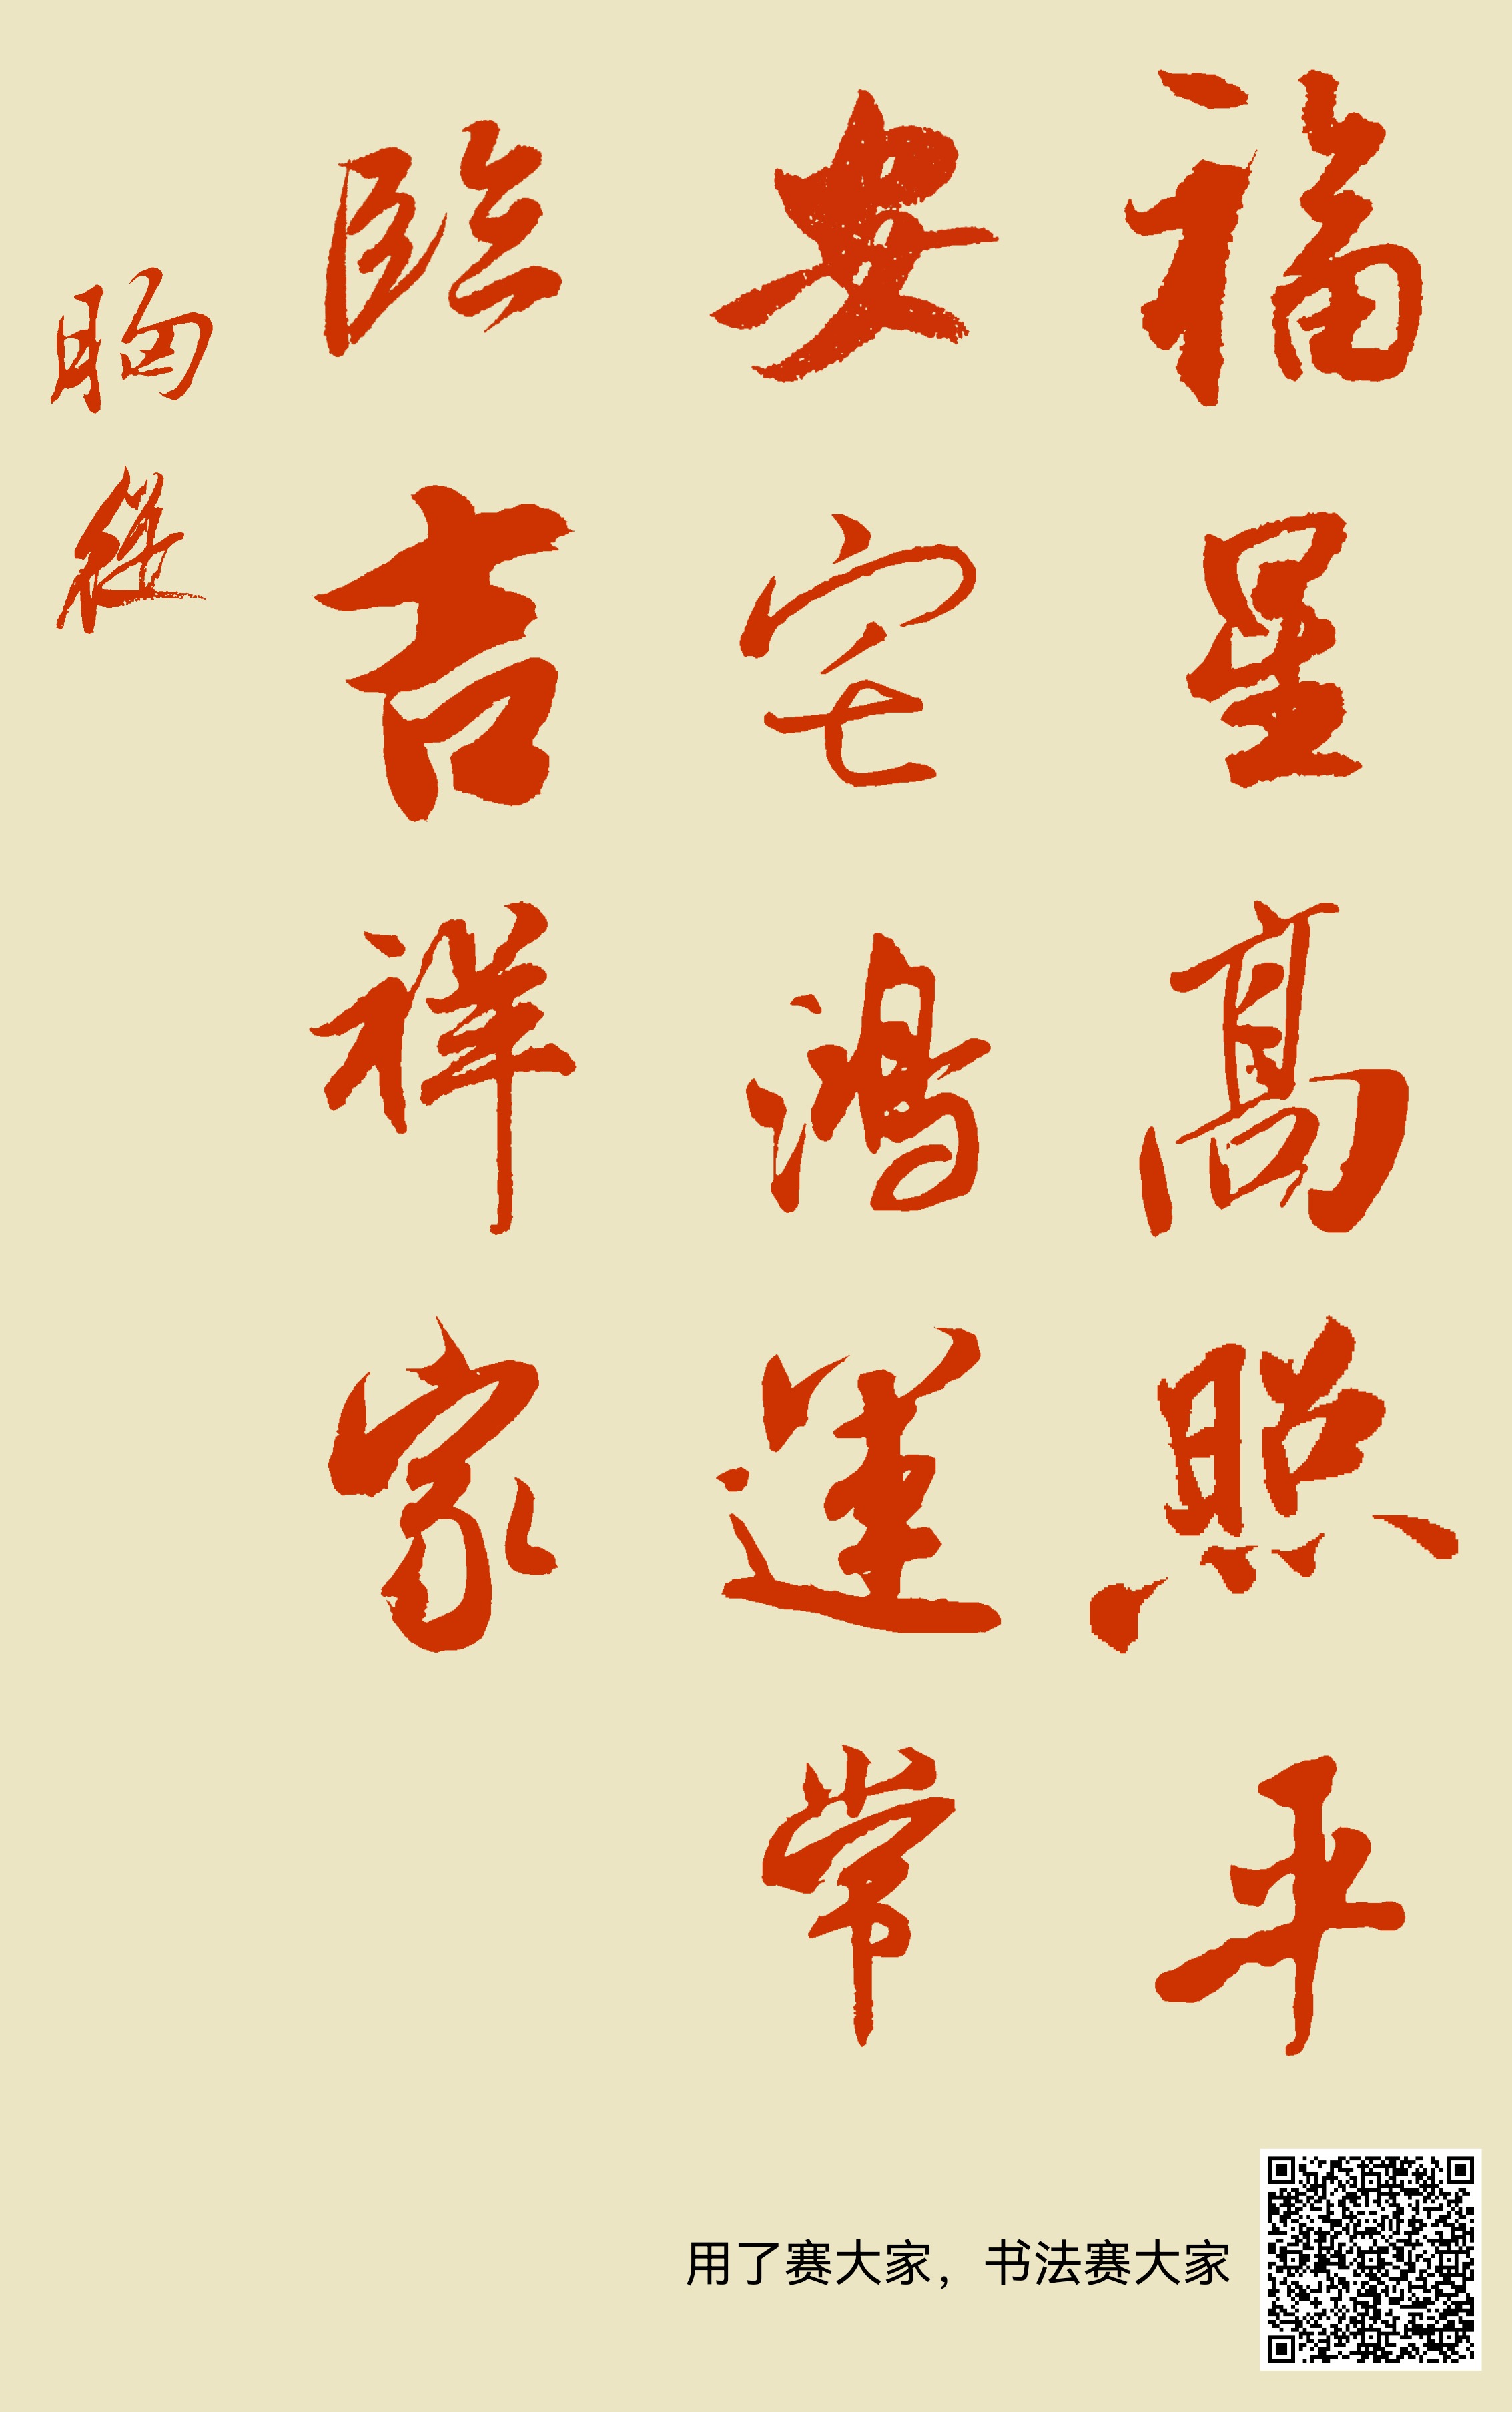 福星高照平
安宅鴻運常
臨吉祥家
晒
用了赛大家，书法赛大家